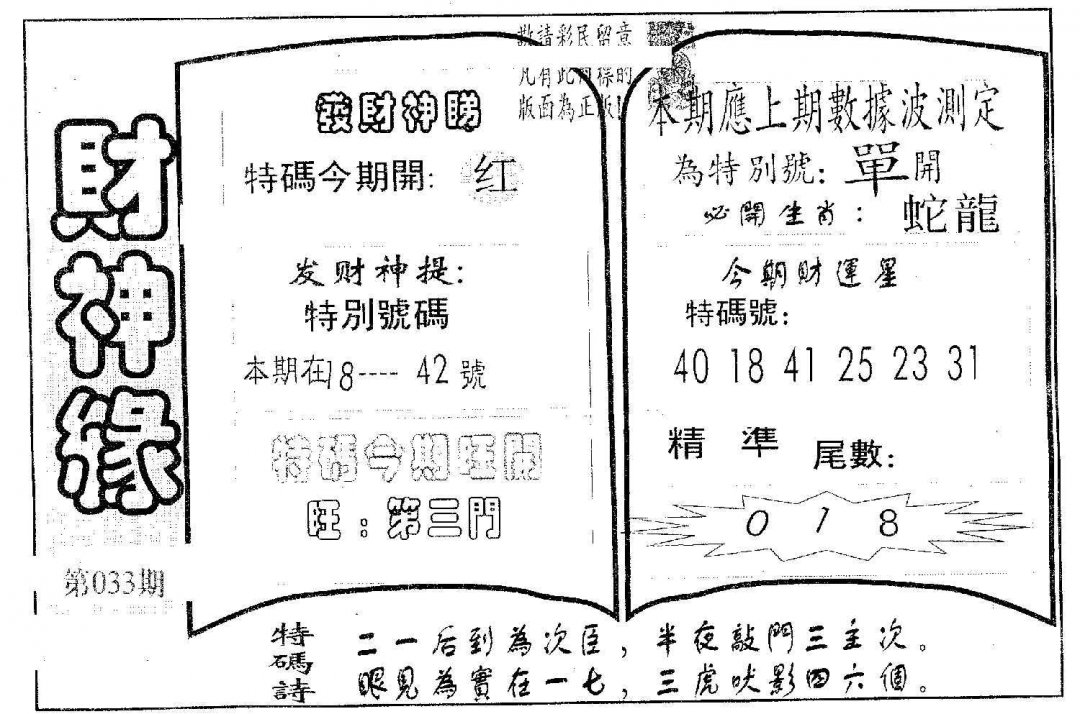 財神緣
第033期
敬請彩民留意
凡有此同樣的
版面為正版!
發財神睇
特碼今期開: 红
发财神提:
特别號碼
本期在18----42號
特碼今期旺開
旺:第三門
本期應上期數據波測定
為特别號:單開
必開生肖: 蛇龍
今期財運星
特碼號:
40 18 41 25 23 31
精準 尾數:
0 1 8
特碼詩
二一后到為次臣,半夜敲門三主次。
眼見為實在一七,三虎吠影四六個。